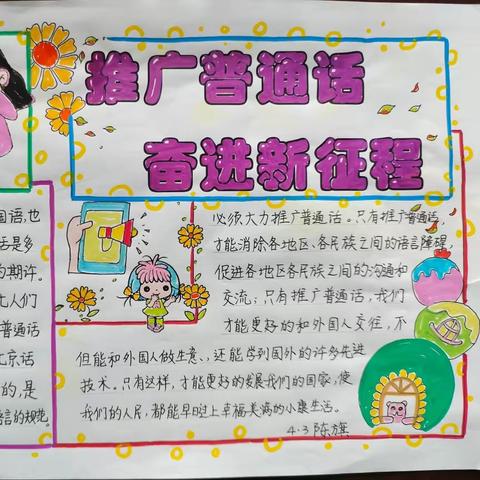 推广普通话
奋进新征程
国语,也
话是多
的期许。
七人们
普通话
北京话
的,是
言的规范。
必须大力推广普通话。只有推广普通话,
才能消除各地区、各民族之间的语言障碍,
促进各地区各民族之间的沟通和
交流;只有推广普通话,我们
才能更好的和外国人交往,不
但能和外国人做生意、还能学到国外的许多先进
技术。只有这样,才能更好的发展我们的国家,使
我们的人民,都能早日过上幸福美满的小康生活。
4.3 陈旗